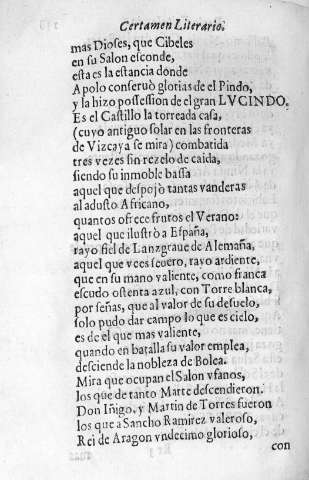 Certamen Literario.
mas Dioses, que Cibeles
en su Salon esconde,
esta es la estancia donde
Apolo conseruò glorias de el Pindo,
y la hizo possession de el gran LVCINDO.
Es el Castillo la torreada casa,
(cuyo antiguo solar en las fronteras
de Vizcaya se mira) combatida
tres vezes sin rezelo de caida,
siendo su inmoble bassa
aquel que despojò tantas vanderas
al adusto Africano,
quantos ofrece frutos el Verano:
aquel que ilustrò a España,
rayo fiel de Lanzgraue de Alemaña,
aquel que vees seuero, rayo ardiente,
que en su mano valiente, como franca
escudo ostenta azul, con Torre blanca,
por señas, que al valor de su desuelo,
solo pudo dar campo lo que es cielo,
es de el que mas valiente,
quando en batalla su valor emplea,
desciende la nobleza de Bolea.
Mira que ocupan el Salon vfanos,
los que de tanto Marte descendieron.
Don Iñigo, y Martin de Torres fueron
los que a Sancho Ramirez valeroso,
Rei de Aragon vndecimo glorioso,
con